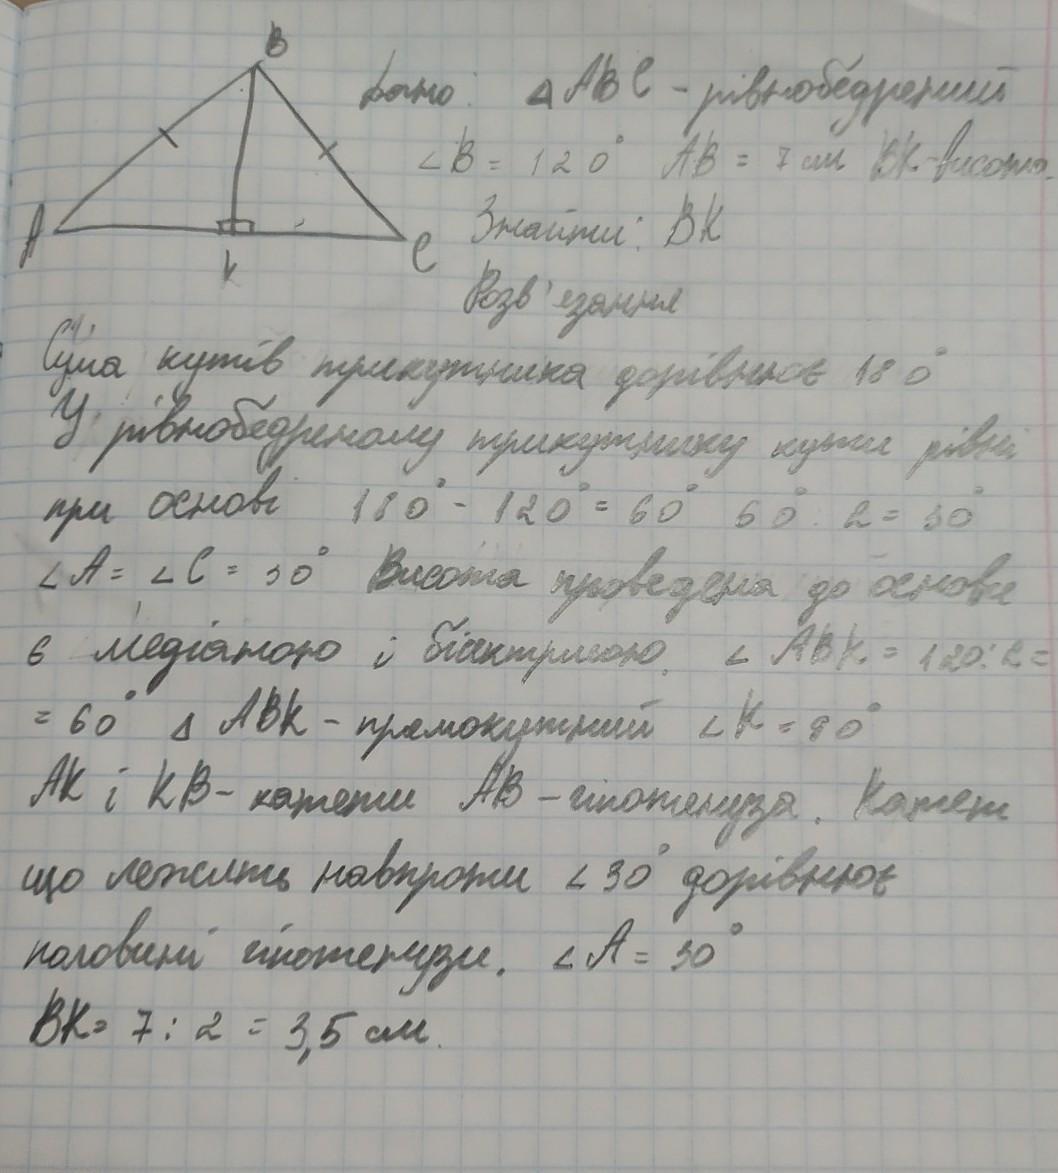 B
Дано: △ABC - рівнобедрений
∠B = 120° AB = 7 см BK - висота.
A
K
C
Знайти: BK
Розв'язання
Сума кутів трикутника дорівнює 180°
У рівнобедреному трикутнику кути рівні
при основі 180° - 120° = 60° 60 : 2 = 30°
∠A = ∠C = 30° Висота проведена до основи
є медіаною і бісектрисою. ∠ABK = 120:2=
= 60° △ABK - прямокутний ∠K = 90°
AK і KB - катети AB - гіпотенуза. Катет
що лежить навпроти ∠30° дорівнює
половині гіпотенузи. ∠A = 30°
BK = 7 : 2 = 3,5 см.